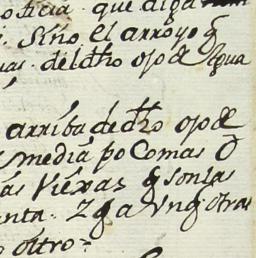 oticia. que diga
. Sino el arroyo q̃
uas. del dho ojo de Agua
arriba de dho ojo de
media po Comas O
as Viexas q̃ son las
anta. Z q a Vng otras
o oltro =